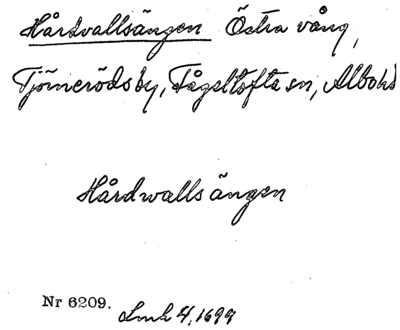 Hårdvallsängen Östra vång,
Tjörneröds by, Fågeltofta sn, Albohd
Hårdwalls ängen
Nr 6209. Lmh 4, 1699